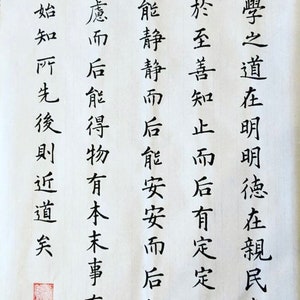 學之道在明明德在親民
於至善知止而后有定定
能静静而后能安安而后
慮而后能得物有本末事有
始知所先後則近道矣